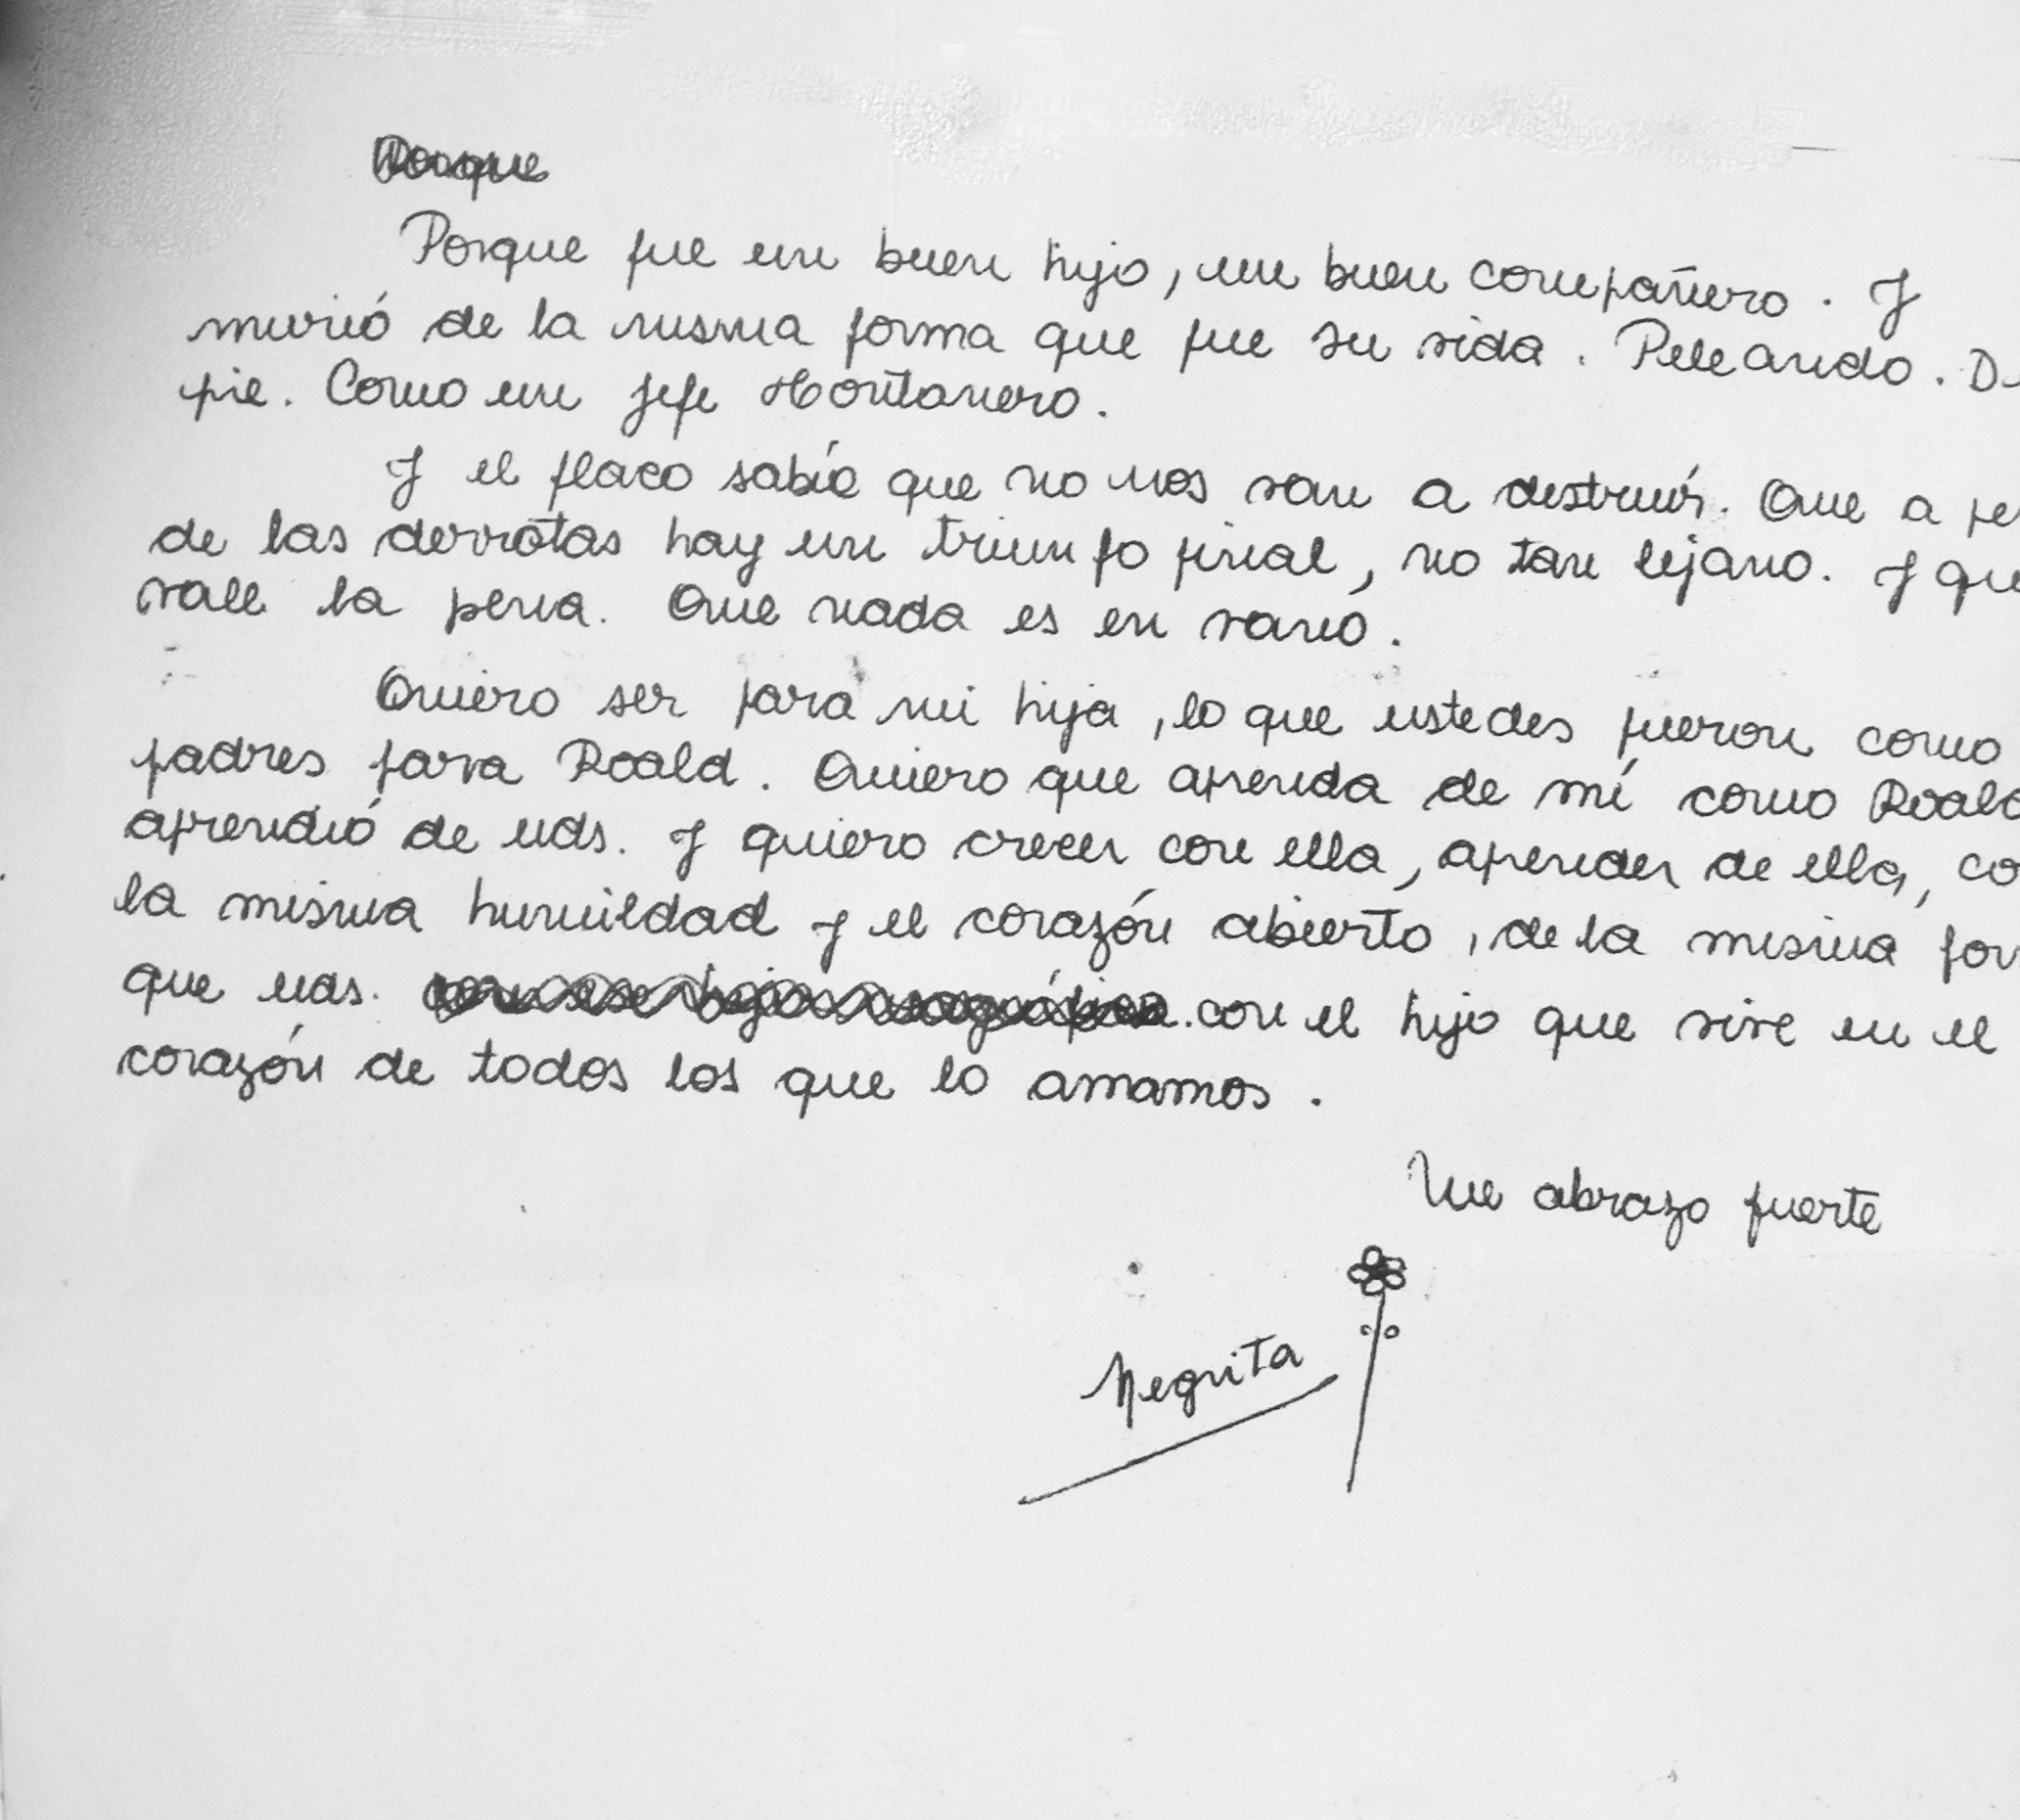 Porque
Porque fue un buen hijo, un buen compañero. Y
murió de la misma forma que fue su vida. Peleando. De
pie. Como un Jefe Montonero.
Y el flaco sabía que no nos van a destruir. Que a pe
de las derrotas hay un triunfo final, no tan lejano. Y que
vale la pena. Que nada es en vano.
Quiero ser para mi hija, lo que ustedes fueron como
padres para Roald. Quiero que aprenda de mí como Roald
aprendió de uds. Y quiero crecer con ella, aprender de ella, co
la misma humildad y el corazón abierto, de la misma for
que uds. con ese hijo magnífico. con el hijo que vive en el
corazón de todos los que lo amamos.
Un abrazo fuerte
Negrita